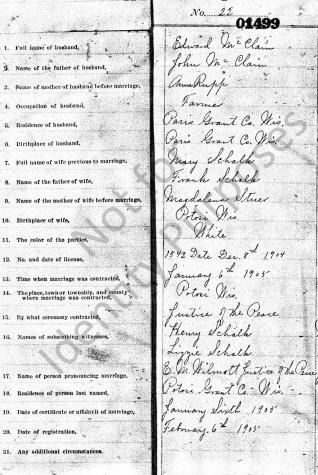 No. 22
01499
1. Full name of husband, Edward McClain
2. Name of the father of husband, John McClain
3. Name of mother of husband before marriage, Anna Rupp
4. Occupation of husband, Farmer
5. Residence of husband, Paris Grant Co. Wis.
6. Birthplace of husband, Paris Grant Co. Wis.
7. Full name of wife previous to marriage, Mary Schalk
8. Name of the father of wife, Frank Schalk
9. Name of the mother of wife before marriage, Magdalena
10. Birthplace of wife, Potosi Wis.
11. The color of the parties, White
12. No. and date of license, 1542 Date Dec. 8th 1904
13. Time when marriage was contracted, January 6th 1905
14. The place, town or township, and county where marriage was contracted, Potosi Wis.
15. By what ceremony contracted, Justice of the Peace
16. Names of subscribing witnesses, Henry Schalk
Lizzie Schalk
17. Name of person pronouncing marriage, E. M. Wilmott Justice of the Peace
18. Residence of person last named, Potosi Grant Co. Wis.
19. Date of certificate or affidavit of marriage, January Sixth 1905
20. Date of registration, February 6th 1905
21. Any additional circumstances.
Not for
Identity Purposes